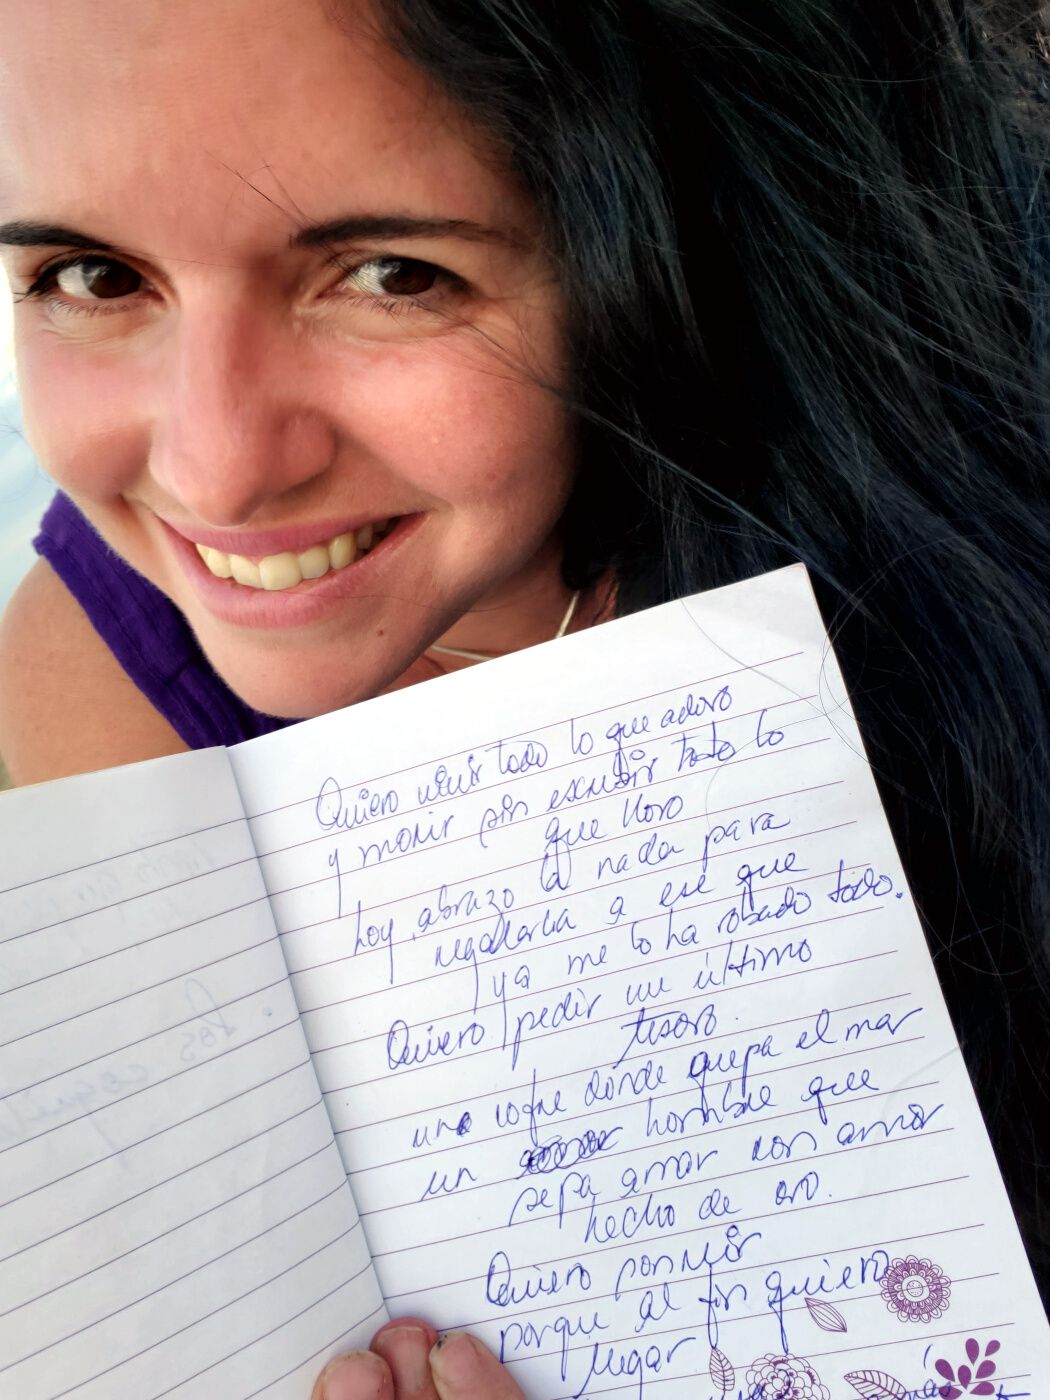 Quiero vivir todo lo que adoro
y morir sin escribir todo lo
que lloro
hoy abrazo la nada para
regalarla a ese que
ya me lo ha robado todo.
Quiero pedir un último
tesoro.
un cofre dónde quepa el mar
un hombre que
sepa amar con amor
hecho de oro.
Quiero sonreír
porque al fin quiero
más